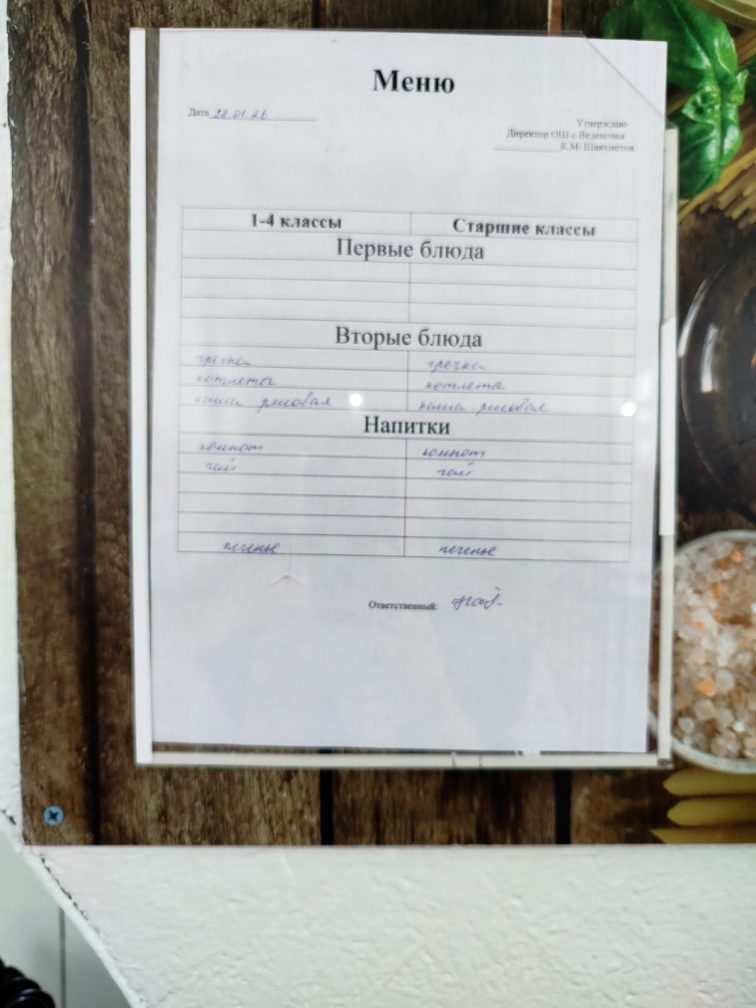 Меню
Дата 28.01.26
Утверждаю
Директор ОШ с Веденовка
К.М. Шаяхметов
1-4 классы Старшие классы
Первые блюда
Вторые блюда
гречка гречка
котлета котлета
каша рисовая каша рисовая
Напитки
компот компот
чай чай
печенье печенье
Ответственный: